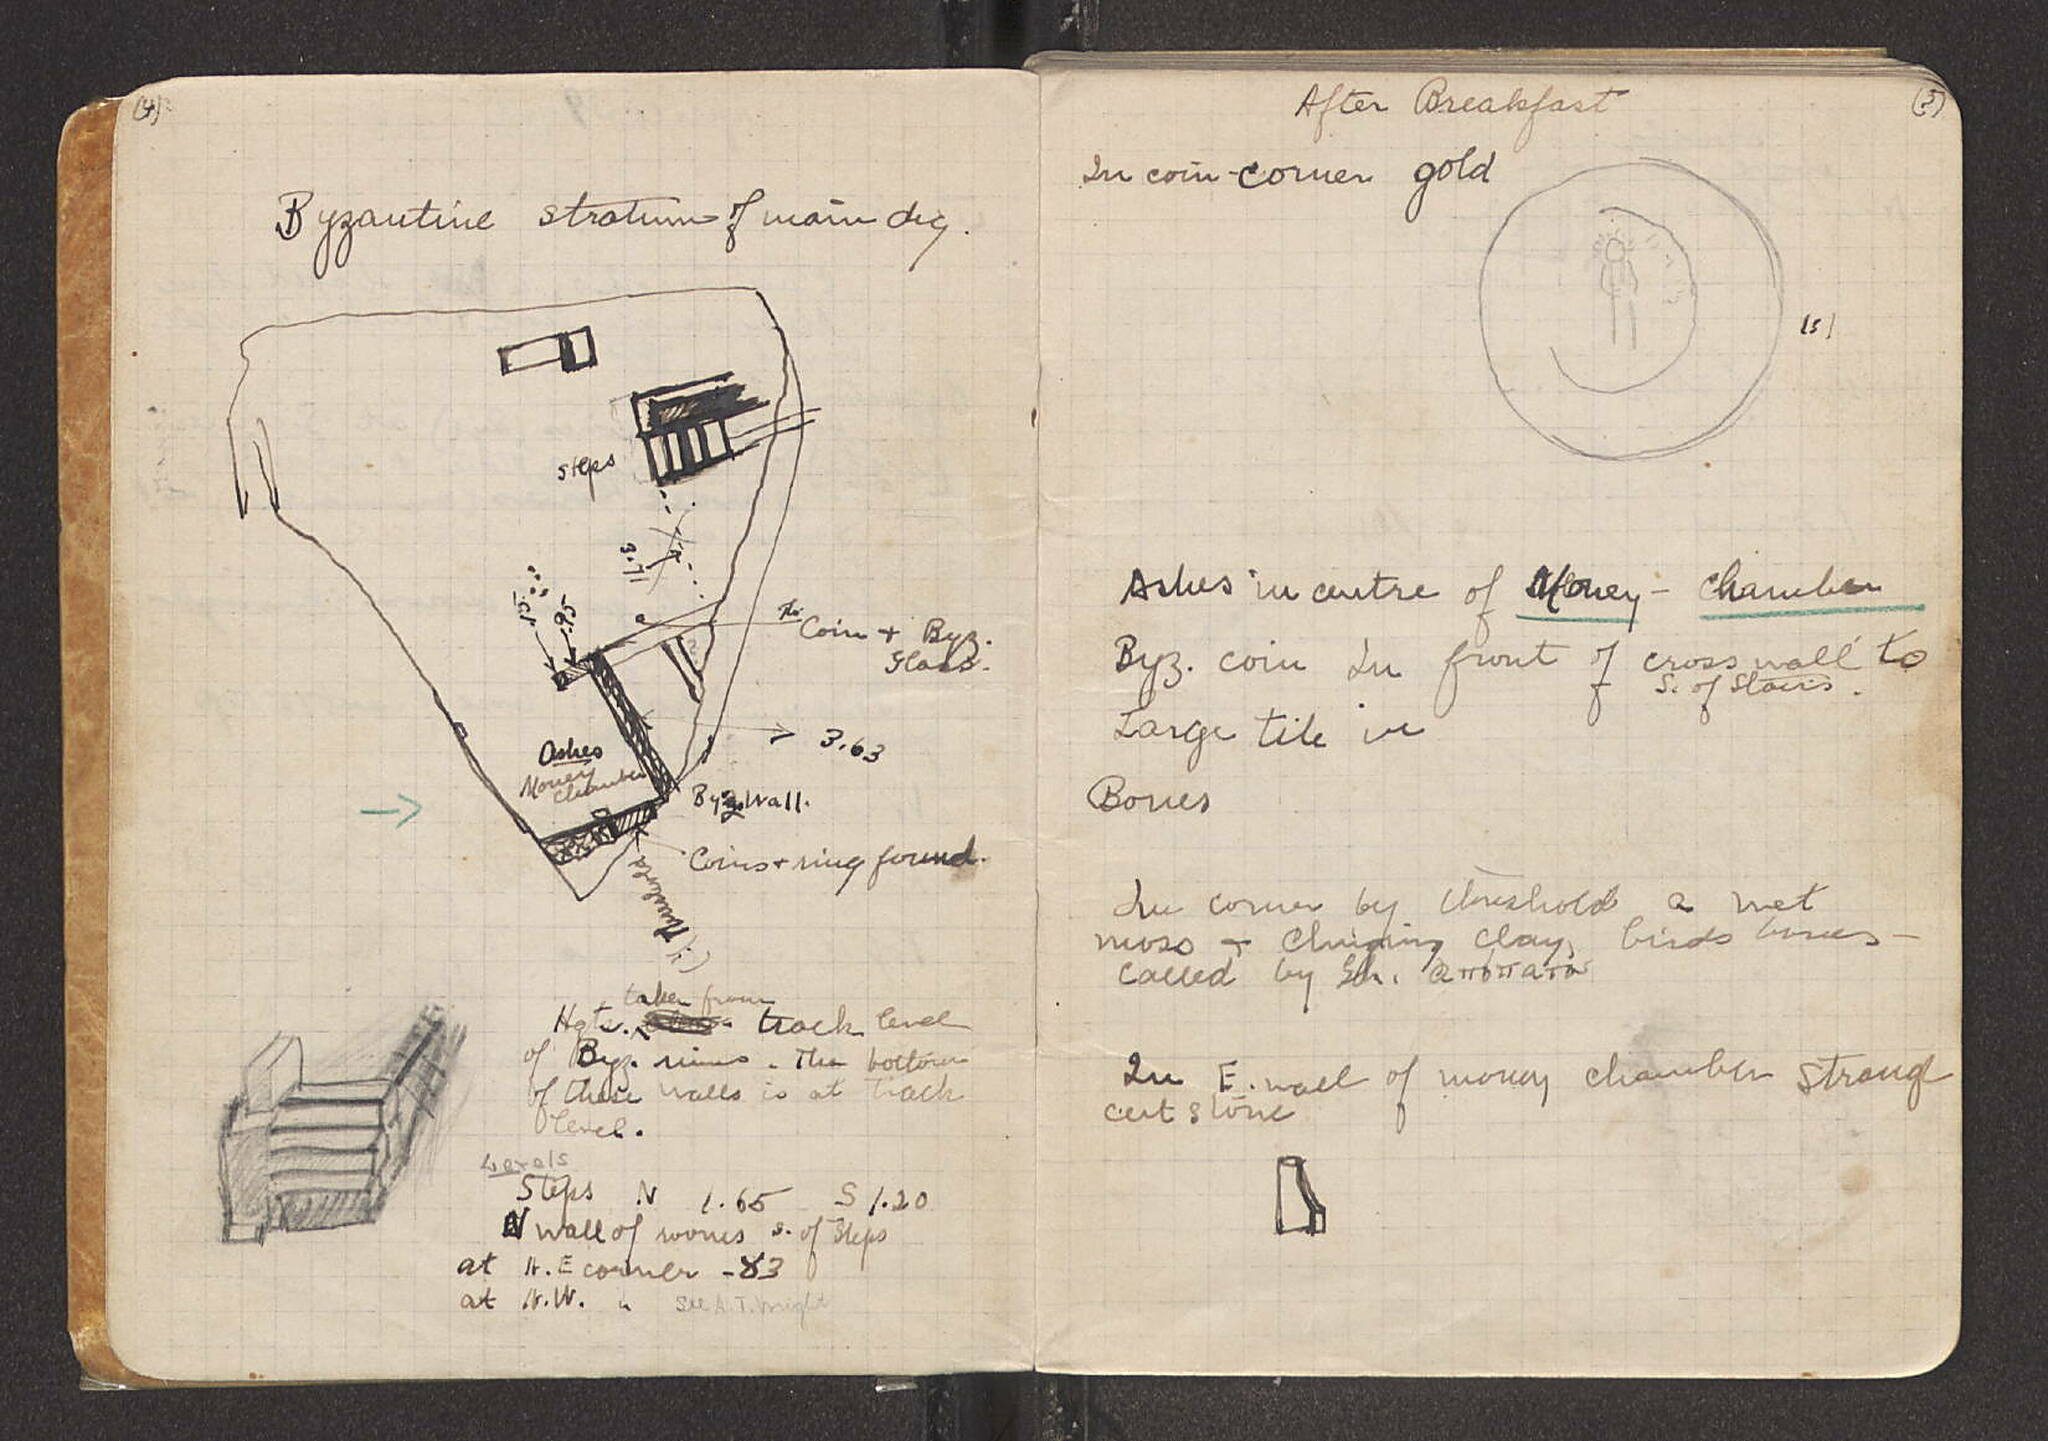 (4)
Byzantine stratum of main dig.
steps
3.71
.15
.95
Coin + Byz.
Glass.
3.63
Ashes
Money
chamber
Byz. Wall.
Coins + ring found.
(?) Threshold
taken from
Hgts. track level
of Byz. ruins. The bottom
of these walls is at track
level.
Levels
Steps N 1.65 S 1.20
N wall of rooms s. of steps
at N.E corner -83
at N.W. " See A.T. Wright
After Breakfast
(5)
In coin-corner gold
Ashes in centre of Money-Chamber
Byz. coin in front of cross wall to
S. of Stairs.
Large tile in
Bones
In corner by threshold a wet
mess + clinging clay, birds bones -
called by
In E. wall of money chamber strange
cut stone